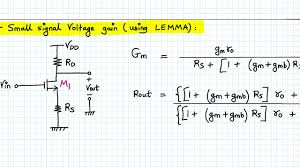 - Small signal Voltage gain (using LEMMA):
VDD
RD
Vin
M1
+
Vout
-
RS
Gm = gmro
RS + [1 + (gm+gmb) RS
Rout = {[1 + (gm+gmb) RS] ro +
{[1 + (gm+gmb) RS] ro +